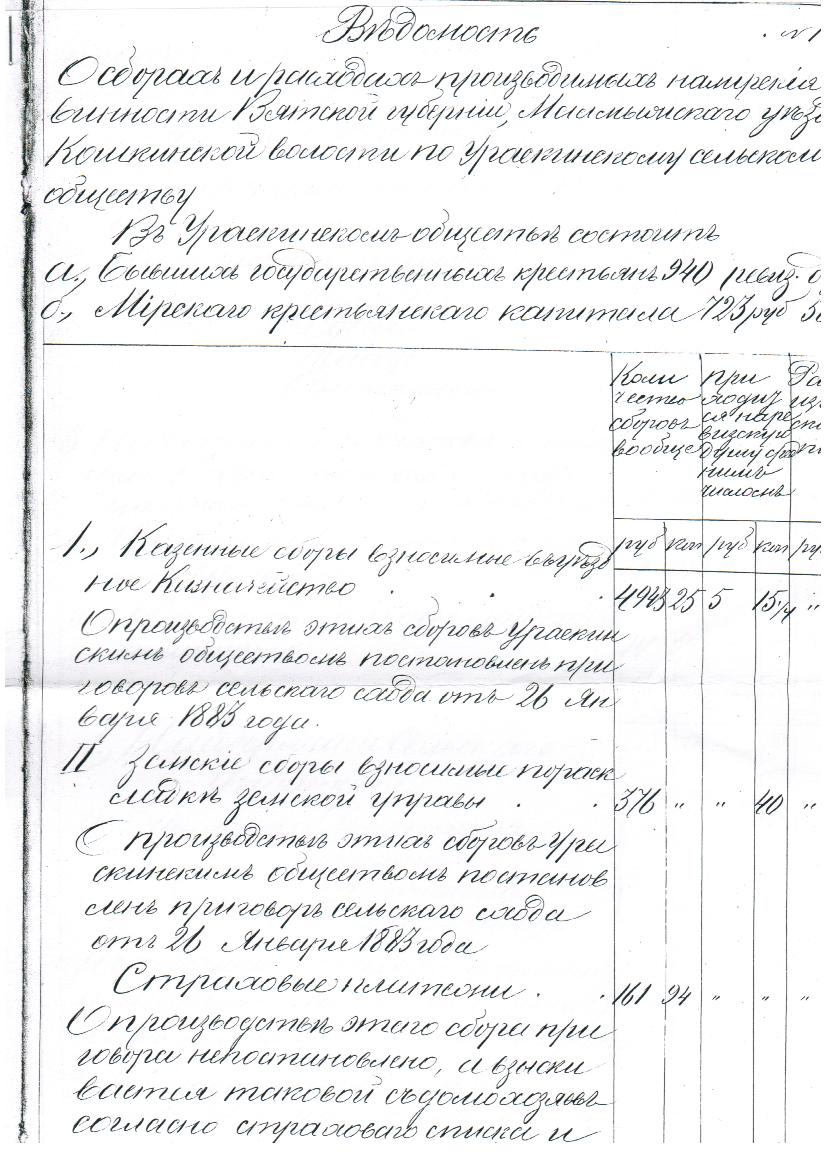 Вѣдомость
№ 1
О сборахъ и расходахъ производимыхъ на мірскія
винности Вятской губерніи, Малмыжскаго уѣзд
Кошкинской волости по Ураскинскому сельском
обществу
Въ Ураскинскомъ обществѣ состоитъ
а., Бывшихъ государственныхъ крестьянъ 940 ревиз. д
б., Мірскаго крестьянскаго капитала 723 руб 5
Коли при Ра
чество ходит из
сборовъ ся на ре
вообще визскую
душу сред
нимъ
числомъ
руб коп руб коп ру
1., Казенные сборы взносимые въ уѣзд
ное Казначейство . . . 4943 25 5 15 1/4 "
О производствѣ этихъ сборовъ Ураскин
скимъ обществомъ постановленъ при
говоровъ сельскаго схода отъ 26 Ян
варя 1883 года.
II Земские сборы взносимые по раск
ладкѣ земской управы . . 376 " " 40 "
О производствѣ этихъ сборовъ Ура
скинскимъ обществомъ постанов
ленъ приговоръ сельскаго схода
отъ 26 Января 1883 года
Страховые платежи . . 161 94 " " "
О производствѣ этого сбора при
говора непостановлено, а взыски
вается таковой съ домохозяевъ
согласно страховаго списка и